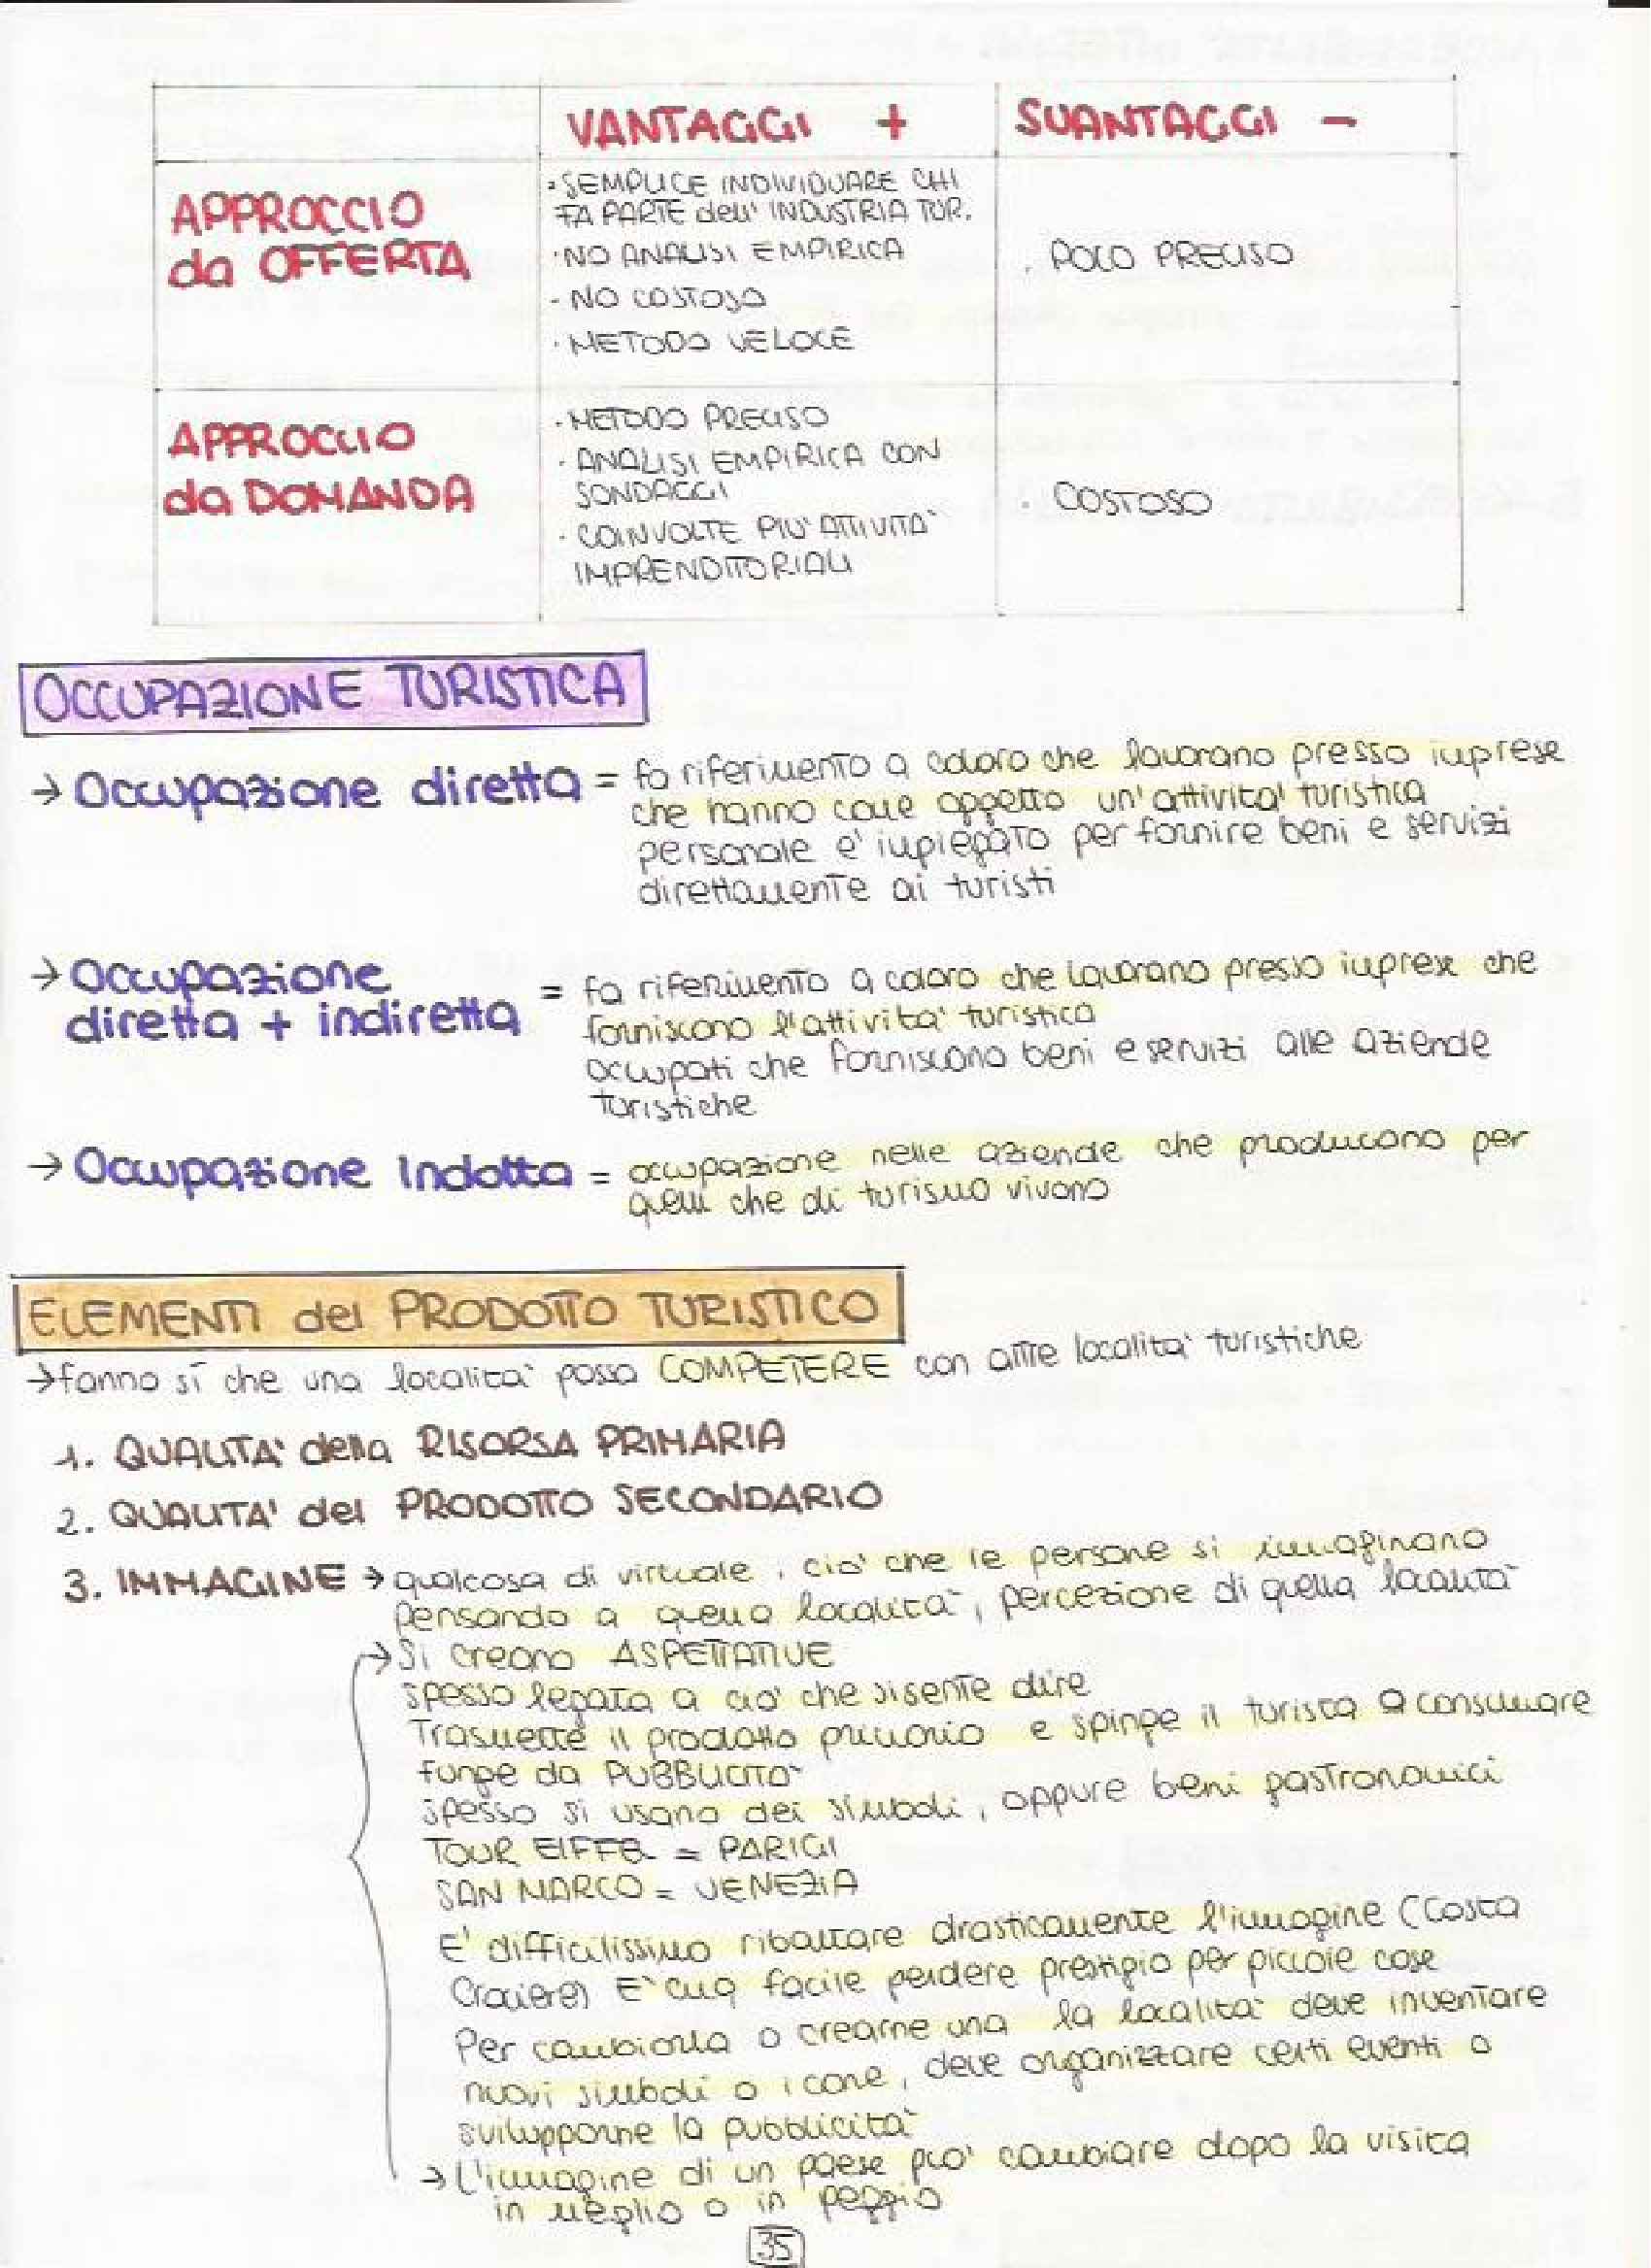 VANTAGGI + SVANTAGGI -
APPROCCIO
da OFFERTA
· SEMPLICE INDIVIDUARE CHI
FA PARTE dell' INDUSTRIA TUR.
· NO ANALISI EMPIRICA
- NO COSTOSO
· METODO VELOCE
. POCO PRECISO
APPROCCIO
da DOMANDA
· METODO PRECISO
· ANALISI EMPIRICA CON
SONDAGGI
· COINVOLTE PIU' ATTIVITA'
IMPRENDITORIALI
· COSTOSO
OCCUPAZIONE TURISTICA
→ Occupazione diretta = fa riferimento a coloro che lavorano presso imprese
che hanno come oggetto un'attivita' turistica
personale e' impiegato per fornire beni e servizi
direttamente ai turisti
→ Occupazione
diretta + indiretta = fa riferimento a coloro che lavorano presso imprese che
forniscono l'attivita' turistica
occupati che forniscono beni e servizi alle aziende
turistiche
→ Occupazione Indotta = occupazione nelle aziende che producono per
quelli che di turismo vivono
ELEMENTI del PRODOTTO TURISTICO
→ fanno sì che una localita' possa COMPETERE con altre localita' turistiche
1. QUALITA' della RISORSA PRIMARIA
2. QUALITA' del PRODOTTO SECONDARIO
3. IMMAGINE → qualcosa di virtuale, cio' che le persone si immaginano
pensando a quella localita', percezione di quella localita'
→ Si creano ASPETTATIVE
spesso legata a cio' che si sente dire
Trasmette il prodotto primario e spinge il turista a consumare
funge da PUBBLICITA'
spesso si usano dei simboli, oppure beni gastronomici
TOUR EIFFEL = PARIGI
SAN MARCO = VENEZIA
E' difficilissimo ribaltare drasticamente l'immagine (Costa
Crociere) E' facile perdere prestigio per piccole cose
Per cambiarla o crearne una la localita' deve inventare
nuovi simboli o icone, deve organizzare certi eventi o
svilupparne la pubblicita'
→ L'immagine di un paese puo' cambiare dopo la visita
in meglio o in peggio
35